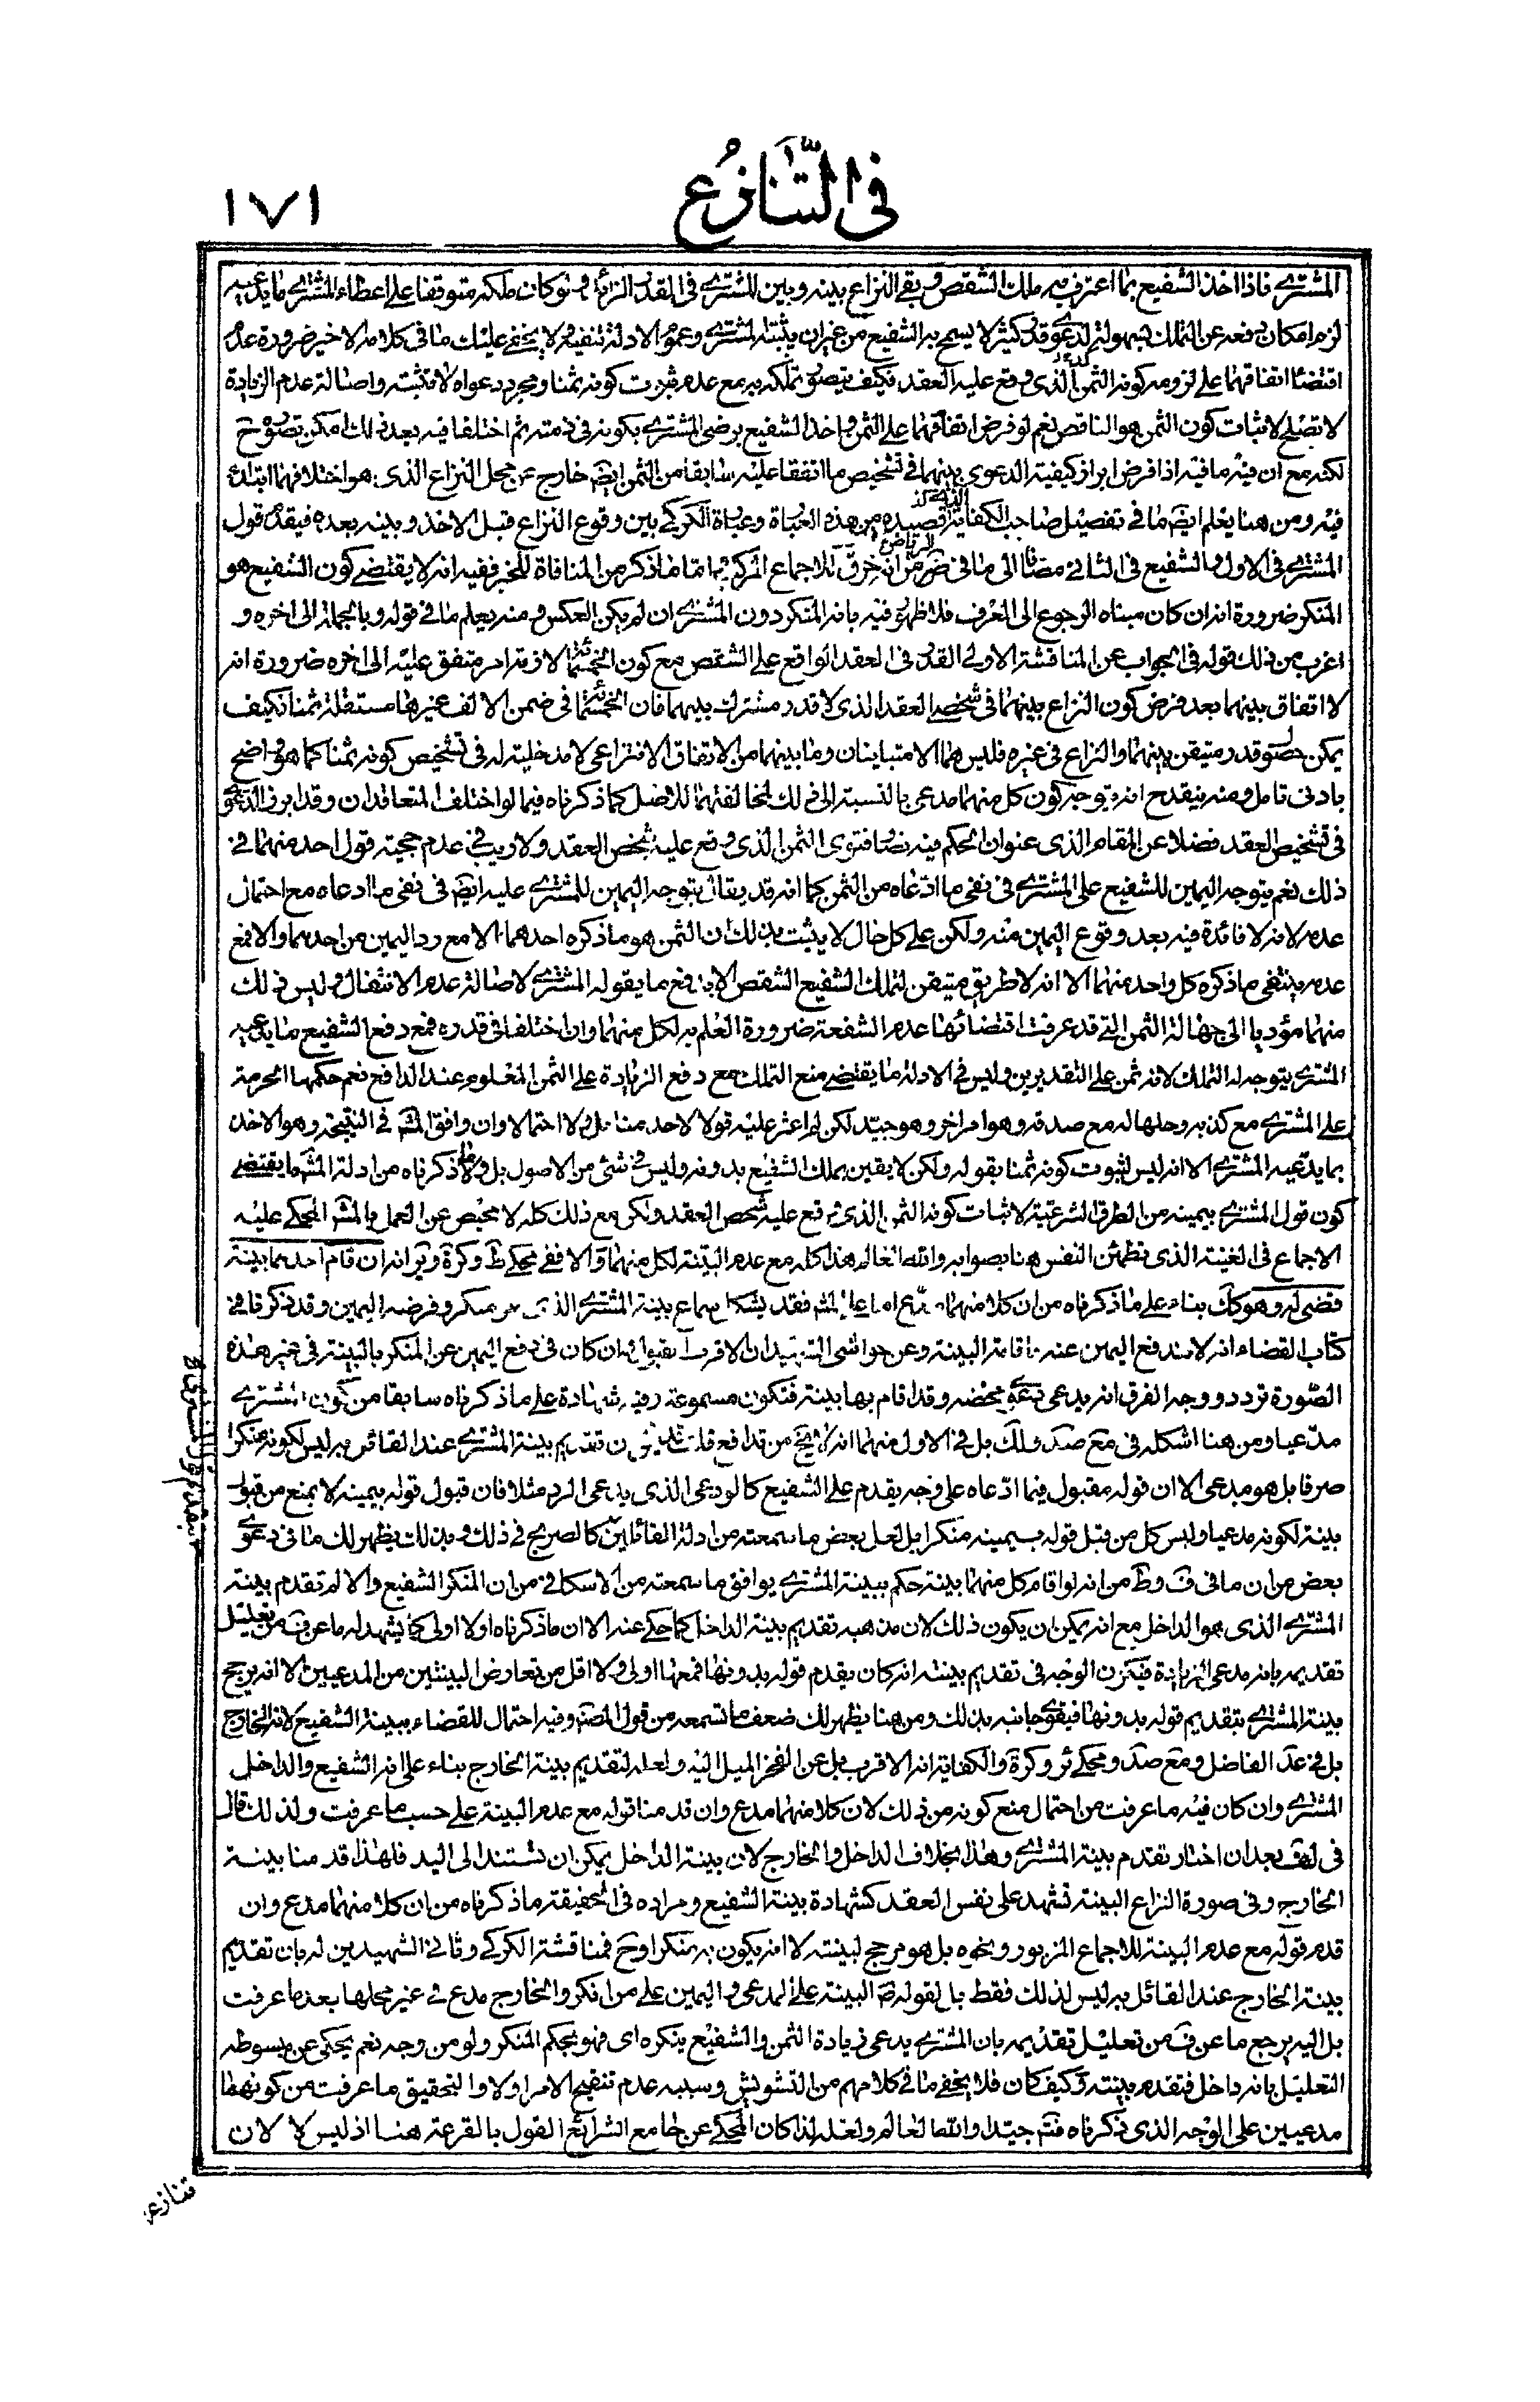 فى التنازع
١٧١
المشترى فاذا اخذ الشفيع بما اعترف به ملك الشقص وبقى النزاع بينه وبين المشترى فى المقدار الزائد ولو كان ملكه متوقفا على اعطاء المشترى ما يدعيه
لزم امكان دفعه عن التملك بسهولة لدعوى قدر كثير لا يسمح به الشفيع من غير ان يثبته المشترى وعموم الادلة تنفيه لا يخفى عليك ما فى كلامه الاخير ضرورة عدم
اقتضاء اتفاقهما على لزومه كونه الثمن الذى وقع عليه العقد فكيف يتصور تملكه به مع عدم ثبوت كونه ثمنا ومجرد دعواه لا تثبته واصالة عدم الزيادة
لا تصلح لاثبات كون الثمن هو الناقص نعم لو فرض اتفاقهما على الثمن واخذ الشفيع برضى المشترى بكونه فى ذمته ثم اختلفا فيه بعد ذلك امكن تصور ح
لكنه مع ان فيه ما فيه اذا فرض ابراز كيفية الدعوى بينهما فى تشخيص ما اتفقا عليه سابقا من الثمن ايضا خارج عن محل النزاع الذى هو اختلافهما ابتداء
فيه ومن هنا يعلم ايضا ما فى تفصيل صاحب الكفاية من هذه العبارة وعبارة الكركى بين وقوع النزاع قبل الاخذ وبينه بعده فيقدم قول
المشترى فى الاول والشفيع فى الثانى مضافا الى ما فى من انه خرق للاجماع المركب اما ما ذكر من المنافاة للخبر ففيه انه لا يقتضى كون الشفيع هو
المنكر ضرورة انه ان كان مبناه الرجوع الى العرف فلا ظهور فيه بانه المنكر دون المشترى ان لم يكن العكس ومنه يعلم ما فى قوله وبالجملة الى اخره و
اغرب من ذلك قوله فى الجواب عن المناقشة الاولى القدر فى العقد الواقع على الشقص مع كون الخمسمائة لازمة امر متفق عليه الى اخره ضرورة انه
لا اتفاق بينهما بعد فرض كون النزاع بينهما فى شخص العقد الذى لا قدر مشترك بينهما فان الخمسمائة فى ضمن الالف غيرها مستقلة ثمنا فكيف
يمكن حصول قدر متيقن بينهما والنزاع فى غيره فليس هما الا متباينان وما بينهما من الاتفاق الانتزاعى لا مدخلية له فى تشخيص كونه ثمنا كما هو واضح
بادنى تامل ومنه ينقدح انه يتوجه كون كل منهما مدعى بالنسبة الى ذلك لمخالفتهما للاصل كما ذكرناه فيما لو اختلف المتعاقدان وقد ابرز الدعوى
فى تشخيص العقد فضلا عن المقام الذى عنوان الحكم فيه نصا وفتوى الثمن الذى وقع عليه شخص العقد ولا ريب فى عدم حجية قول احد منهما فى
ذلك نعم يتوجه اليمين للشفيع على المشترى فى نفى ما ادعاه من الثمن كما انه قد يقال بتوجه اليمين للمشترى عليه ايضا فى نفى ما ادعاه مع احتمال
عدمه لانه لا فائدة فيه بعد وقوع اليمين منه ولكن على كل حال لا يثبت بذلك ان الثمن هو ما ذكره احدهما الا مع رد اليمين من احدهما والا فمع
عدمه ينتفى ما ذكره كل واحد منهما الا انه لا طريق متيقن لتملك الشفيع الشقص الا بدفع ما يقوله المشترى لاصالة عدم الانتقال وليس ذلك
منهما مؤديا الى جهالة الثمن التى قد عرفت اقتضائها عدم الشفعة ضرورة العلم به لكل منهما وان اختلفا فى قدره فمع دفع الشفيع ما يدعيه
المشترى يتوجه له التملك لانه ثمن على التقديرين وليس فى الادلة ما يقتضى منع التملك مع دفع الزيادة على الثمن المعلوم عند الدافع نعم حكمها الحرمة
على المشترى مع كذبه وحلها له مع صدقه وهو امر اخر وهو جيد لكن لم اعثر عليه قولا لاحد منا بل ولا احتمالا وان وافق المشهور فى النتيجة وهو الاخذ
بما يدعيه المشترى الا انه ليس لثبوت كونه ثمنا بقوله ولكن لا يقين بملك الشفيع بدونه وليس فى شئ من الاصول بل ولا ما ذكرناه من ادلة المشهور ما يقتضى
كون قول المشترى بيمينه من الطرق الشرعية لاثبات كونه الثمن الذى وقع عليه شخص العقد ولكن مع ذلك كله لا محيص عن العمل بالمشهور المحكى عليه
الاجماع فى الغنية الذى تطمئن النفس هنا بصوابه والله العالم هذا كله مع عدم البينة لكل منهما والا ففى محكى ط وكرة وير انه ان قام احدهما بينة
قضى له وهو كك بناء على ما ذكرناه من ان كلا منهما مدع اما على المشهور فقد يشكل سماع بينة المشترى الذى هو منكر وفرضه اليمين وقد ذكرنا فى
كتاب القضاء انه لا تندفع اليمين عنه باقامة البينة وعن حواشى الشهيد ان الاقرب القبول وان كان فى دفع اليمين عن المنكر بالبينة فى غير هذه
الصورة تردد ووجه الفرق انه يدعى دعوى محضه وقد اقام بها بينة فتكون مسموعة وفيه شهادة على ما ذكرناه سابقا من كون المشترى
مدعيا ومن هنا اشكله فى مع صد ولك بل فى الاول منهما انه لا يخ من تدافع قلت تقديم بينة المشترى عند القائل به ليس لكونه منكرا
صرفا بل هو مدعى الا ان قوله مقبول فيما ادعاه على وجه يقدم على الشفيع كالودعى الذى يدعى الرد مثلا فان قبول قوله بيمينه لا يمنع من قبول
بينة لكونه مدعيا وليس كل من قبل قوله بيمينه منكرا بل لعل بعض ما سمعته من ادلة القائلين كالصريح فى ذلك وبذلك يظهر لك ما فى دعوى
بعض من ان ما فى ف وط من انه لو اقام كل منهما بينة حكم ببينة المشترى يوافق ما سمعته من الاسكافى من ان المنكر الشفيع والا لم تقدم بينة
المشترى الذى هو الداخل مع انه يمكن ان يكون ذلك لان مذهبه تقديم بينة الداخل كما حكى عنه الا ان ما ذكرناه اولا اولى كما يشهد له ما عن ف من تعليل
تقديمه بانه مدعى الزيادة فيكون الوجه فى تقديم بينته انه كان يقدم قوله بدونها فمعها اولى ولا اقل من تعارض البينتين من المدعيين الا انه يرجح
بينة المشترى بتقديم قوله بدونها فيقوى جانبه بذلك ومن هنا يظهر لك ضعف ما تسمعه من قول المصنف وفيه احتمال للقضاء ببينة الشفيع لانه الخارج
بل فى عد الفاضل ومع صد ومحكى ئر وكرة والكفاية انه الاقرب بل عن الفخر الميل اليه ولعله لتقديم بينة الخارج بناء على انه الشفيع والداخل
المشترى وان كان فيه ما عرفت من احتمال منع كونه من ذلك لان كلا منهما مدع وان قدمنا قوله مع عدم البينة على حسب ما عرفت ولذلك قال
فى لف بعد ان اختار تقدم بينة المشترى وهذا بخلاف الداخل والخارج لان بينة الداخل يمكن ان تستند الى اليد فلهذا قدمنا بينة
الخارج وفى صورة النزاع البينة تشهد على نفس العقد كشهادة بينة الشفيع ومراده فى الحقيقة ما ذكرناه من ان كلا منهما مدع وان
قدم قوله مع عدم البينة للاجماع المزبور ونحوه بل هو مرجح لبينته لا انه يكون به منكرا وح فمناقشة الكركى وثانى الشهيدين له بان تقديم
بينة الخارج عند القائل به ليس لذلك فقط بل لقوله ص البينة على المدعى واليمين على من انكر والخارج مدع فى غير محلها بعد ما عرفت
بل اليه يرجع ما عن ف من تعليل تقديمه بان المشترى يدعى زيادة الثمن والشفيع ينكره اى فهو بحكم المنكر ولو من وجه نعم يحكى عن مبسوطه
التعليل بانه داخل فتقدم بينته وكيف كان فلا يخفى ما فى كلامهم من التشويش وسببه عدم تنقيح الامر اولا والتحقيق ما عرفت من كونهما
مدعيين على الوجه الذى ذكرناه فتم جيدا والله العالم ولعله لذا كان المحكى عن جامع الشرائع القول بالقرعة هنا اذ ليس الا لان
تنازعا